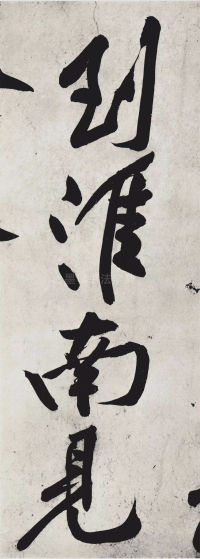 到淮南見